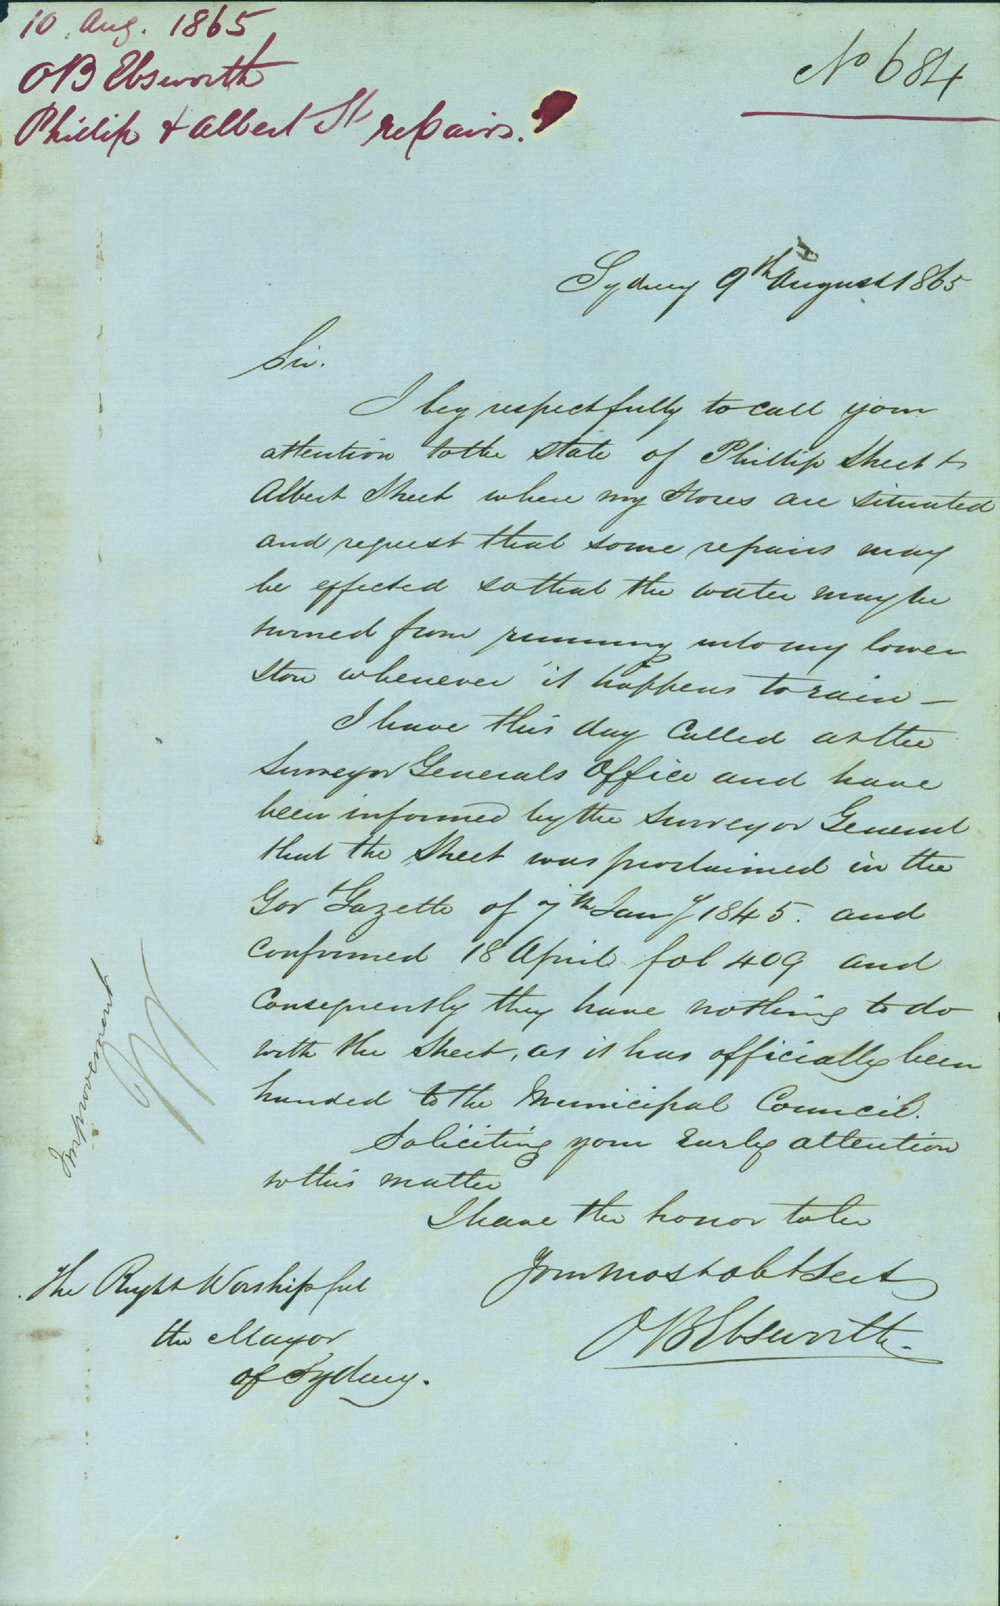 10 Aug. 1865
OB Ebsworth
Phillip & Albert St repairs.
No 684
Sydney 9th August 1865
Sir.
I beg respectfully to call your
attention to the state of Phillip Street &
Albert Street where my Stores are situated
and request that some repairs may
be effected so that the water may be
turned from running into my lower
Store whenever it happens to rain —
I have this day Called at the
Surveyor Generals Office and have
been informed by the Surveyor General
that the Street was proclaimed in the
Govt Gazette of 7th Jany 1845. and
Confirmed 18 April fol 409 and
Consequently they have nothing to do
with the Street, as it has officially been
handed to the Municipal Council.
Soliciting your Early attention
to this matter
I have the honor to be
Your most obt Servt
OB Ebsworth.
The Right Worshipful
the Mayor
of Sydney.
Improvement